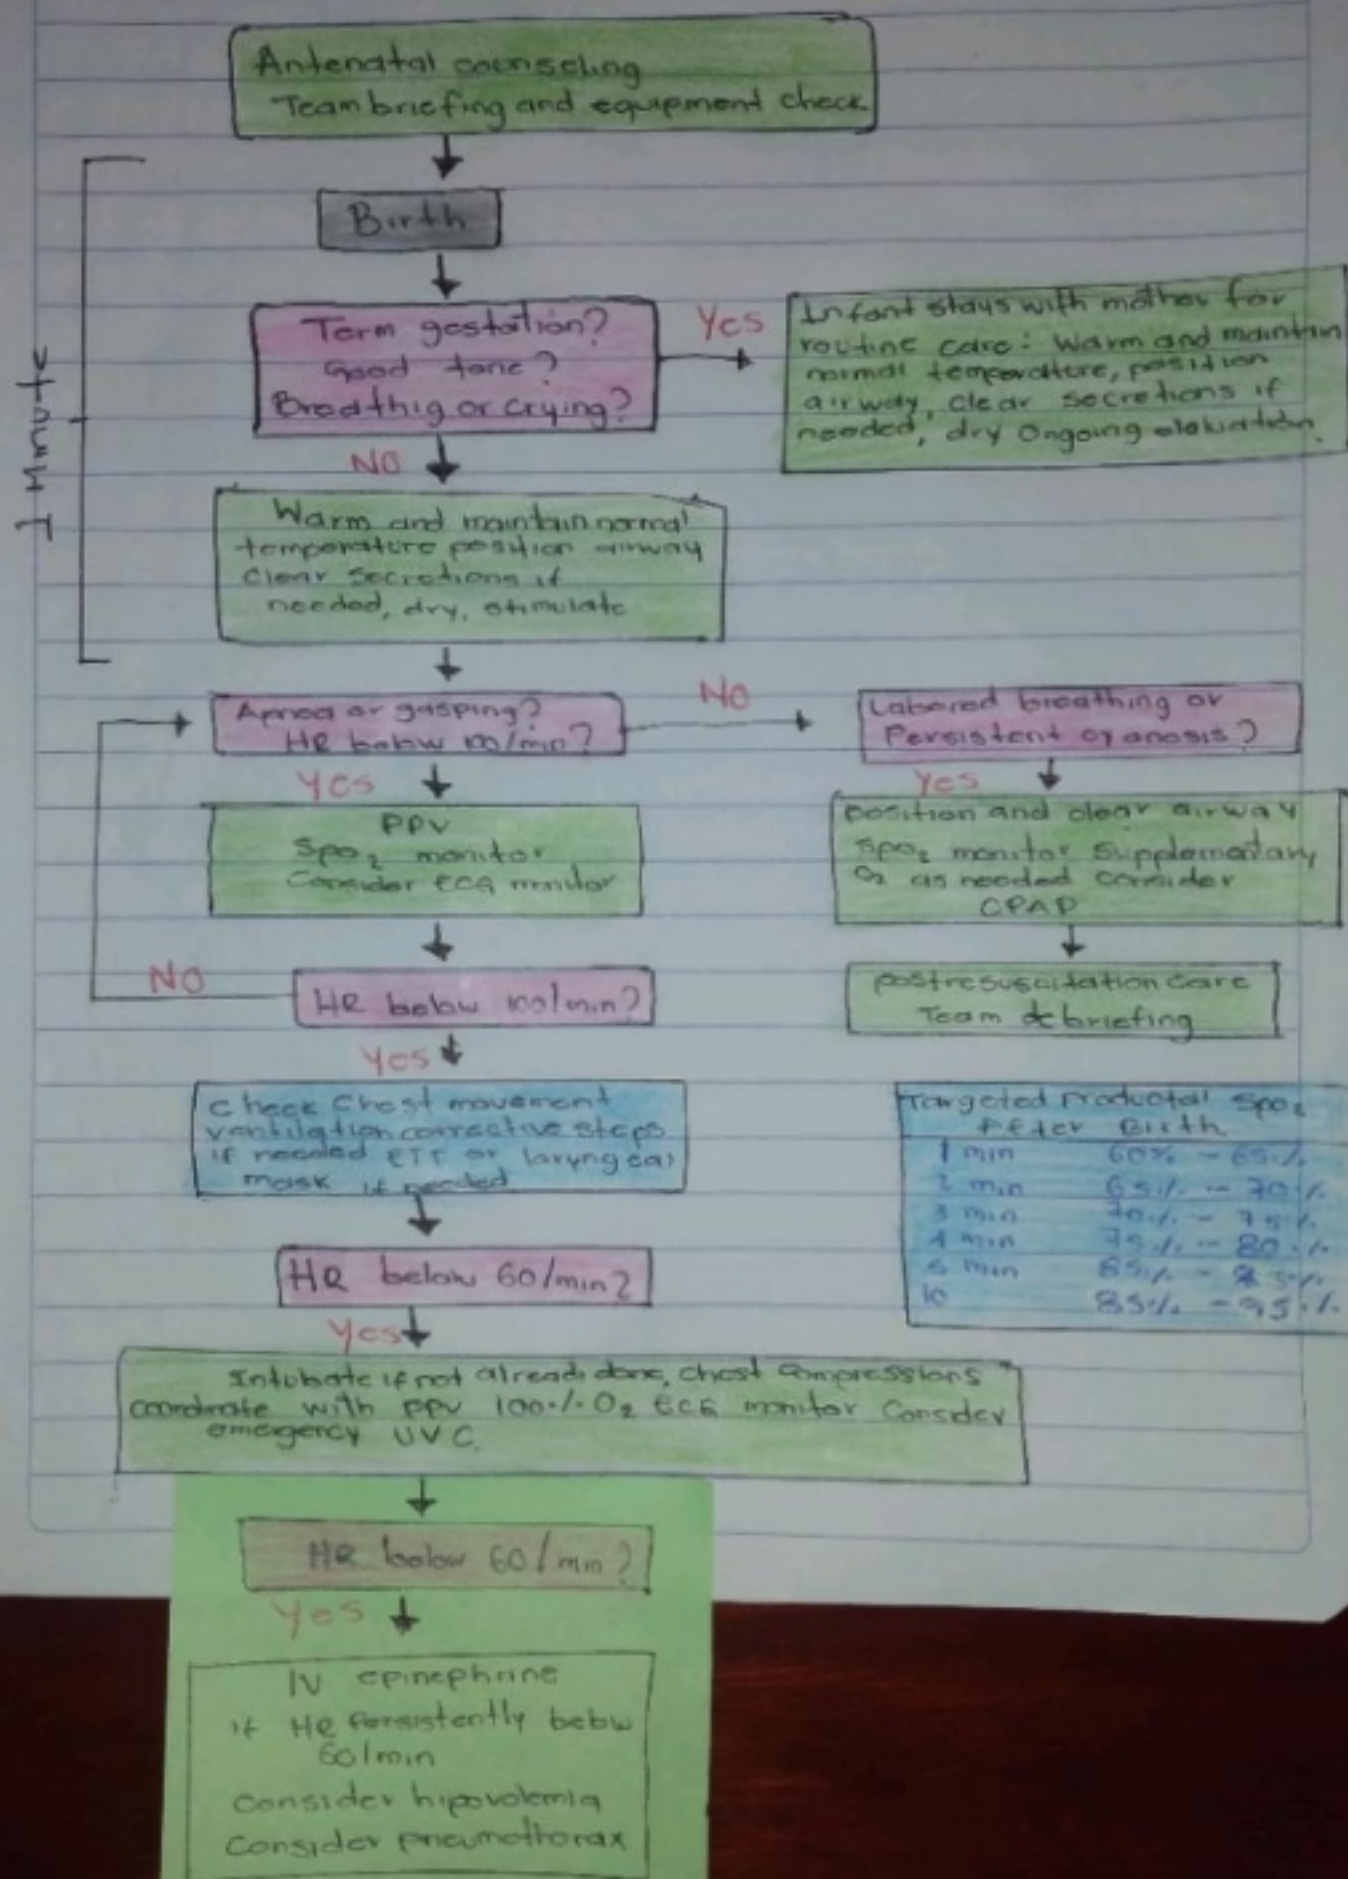 Antenatal counseling
Team briefing and equipment check
Birth
1 Minute
Term gestation?
Good tone?
Breathig or crying?
Yes
Infant stays with mother for
routine care: Warm and maintain
normal temperature, position
airway, clear secretions if
needed, dry Ongoing
NO
Warm and maintain normal
temperature position airway
Clear secretions if
needed, dry, stimulate
Apnea or gasping?
HR below 100/min?
NO
Labored breathing or
Persistent cyanosis?
Yes
PPV
SpO2 monitor
Consider ECG monitor
Yes
position and clear airway
SpO2 monitor Supplementary
O2 as needed consider
CPAP
NO
HR below 100/min?
postresuscitation care
Team debriefing
Yes
check Chest movement
ventilation corrective steps
if needed ETT or laryngeal
mask if needed
Targeted Productal SpO2
After Birth
1 min 60% - 65%
2 min 65% - 70%
3 min 70% - 75%
4 min 75% - 80%
5 min
10 85% - 95%
HR below 60/min?
Yes
Intubate if not alreadi done, chest compressions
coordinate with PPV 100% O2 ECG monitor Consider
emergency UVC
HR below 60/min?
Yes
IV epinephrine
if HR Persistently below
60/min
consider hipovolemia
Consider pneumothorax